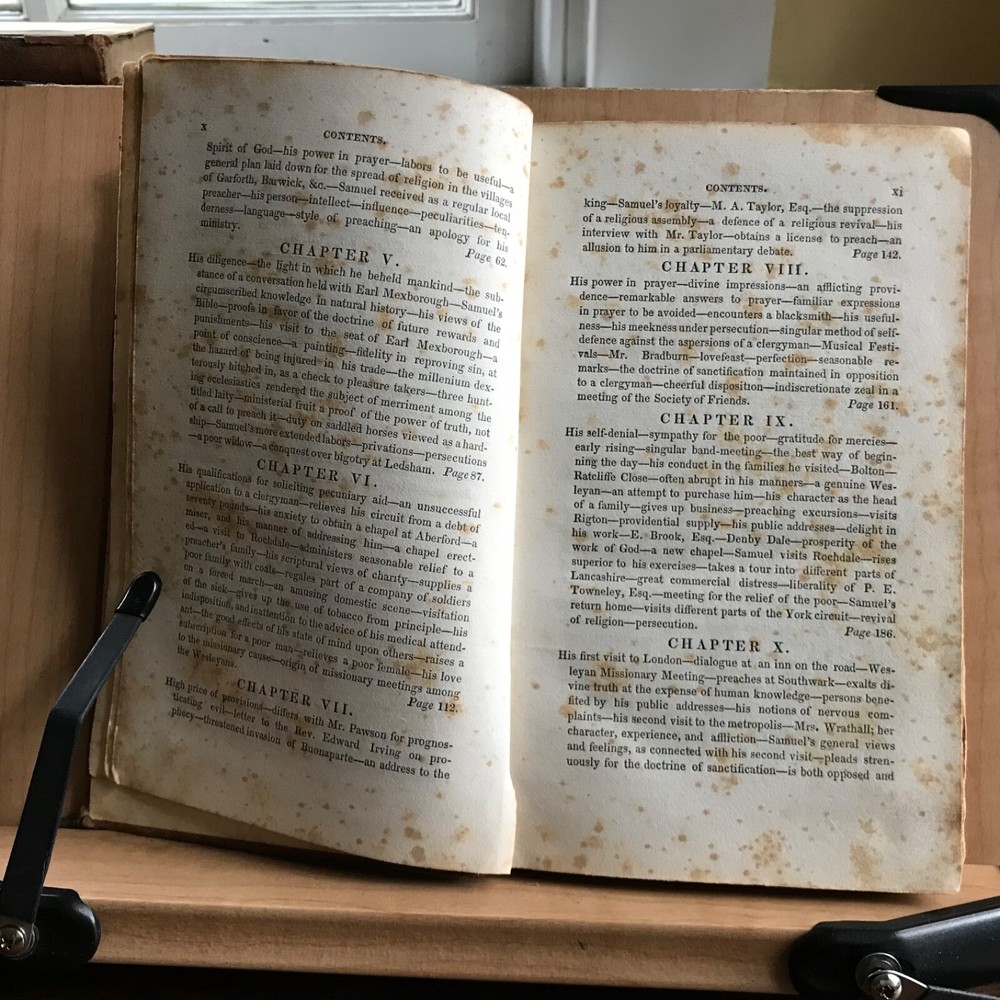 x
CONTENTS.
Spirit of God—his power in prayer—labors to be useful—a
general plan laid down for the spread of religion in the villages
of Garforth, Barwick, &c.—Samuel received as a regular local
preacher—his person—intellect—influence—peculiarities—ten-
derness—language—style of preaching—an apology for his
ministry. Page 62.
CHAPTER V.
His diligence—the light in which he beheld mankind—the sub-
stance of a conversation held with Earl Mexborough—Samuel's
circumscribed knowledge in natural history—his views of the
Bible—proofs in favor of the doctrine of future rewards and
punishments—his visit to the seat of Earl Mexborough—a
point of conscience—a painting—fidelity in reproving sin, at
the hazard of being injured in his trade—the millenium dex-
terously hitched in, as a check to pleasure takers—three hunt-
ing ecclesiastics rendered the subject of merriment among the
titled laity—ministerial fruit a proof of the power of truth, not
of a call to preach it—duty on saddled horses viewed as a hard-
ship—Samuel's more extended labors—privations—persecutions
—a poor widow—a conquest over bigotry at Ledsham. Page 87.
CHAPTER VI.
His qualifications for soliciting pecuniary aid—an unsuccessful
application to a clergyman—relieves his circuit from a debt of
seventy pounds—his anxiety to obtain a chapel at Aberford—a
miser, and his manner of addressing him—a chapel erect-
ed—a visit to Rochdale—administers seasonable relief to a
preacher's family—his scriptural views of charity—supplies a
poor family with coals—regales part of a company of soldiers
on a forced march—an amusing domestic scene—visitation
of the sick—gives up the use of tobacco from principle—his
indisposition, and inattention to the advice of his medical attend-
ant—the good effects of his state of mind upon others—raises a
subscription for a poor man—relieves a poor female—his love
to the missionary cause—origin of missionary meetings among
the Wesleyans. Page 112.
CHAPTER VII.
High price of provisions—differs with Mr. Pawson for prognos-
ticating evil—letter to the Rev. Edward Irving on pro-
phecy—threatened invasion of Buonaparte—an address to the
CONTENTS. xi
king—Samuel's loyalty—M. A. Taylor, Esq.—the suppression
of a religious assembly—a defence of a religious revival—his
interview with Mr. Taylor—obtains a license to preach—an
allusion to him in a parliamentary debate. Page 142.
CHAPTER VIII.
His power in prayer—divine impressions—an afflicting provi-
dence—remarkable answers to prayer—familiar expressions
in prayer to be avoided—encounters a blacksmith—his useful-
ness—his meekness under persecution—singular method of self-
defence against the aspersions of a clergyman—Musical Festi-
vals—Mr. Bradburn—lovefeast—perfection—seasonable re-
marks—the doctrine of sanctification maintained in opposition
to a clergyman—cheerful disposition—indiscretionate zeal in a
meeting of the Society of Friends. Page 161.
CHAPTER IX.
His self-denial—sympathy for the poor—gratitude for mercies—
early rising—singular band-meeting—the best way of begin-
ning the day—his conduct in the families he visited—Bolton—
Ratcliffe Close—often abrupt in his manners—a genuine Wes-
leyan—an attempt to purchase him—his character as the head
of a family—gives up business—preaching excursions—visits
Rigton—providential supply—his public addresses—delight in
his work—E. Brook, Esq.—Denby Dale—prosperity of the
work of God—a new chapel—Samuel visits Rochdale—rises
superior to his exercises—takes a tour into different parts of
Lancashire—great commercial distress—liberality of P. E.
Towneley, Esq.—meeting for the relief of the poor—Samuel's
return home—visits different parts of the York circuit—revival
of religion—persecution. Page 186.
CHAPTER X.
His first visit to London—dialogue at an inn on the road—Wes-
leyan Missionary Meeting—preaches at Southwark—exalts di-
vine truth at the expense of human knowledge—persons bene-
fited by his public addresses—his notions of nervous com-
plaints—his second visit to the metropolis—Mrs. Wrathall; her
character, experience, and affliction—Samuel's general views
and feelings, as connected with his second visit—pleads stren-
uously for the doctrine of sanctification—is both opposed and